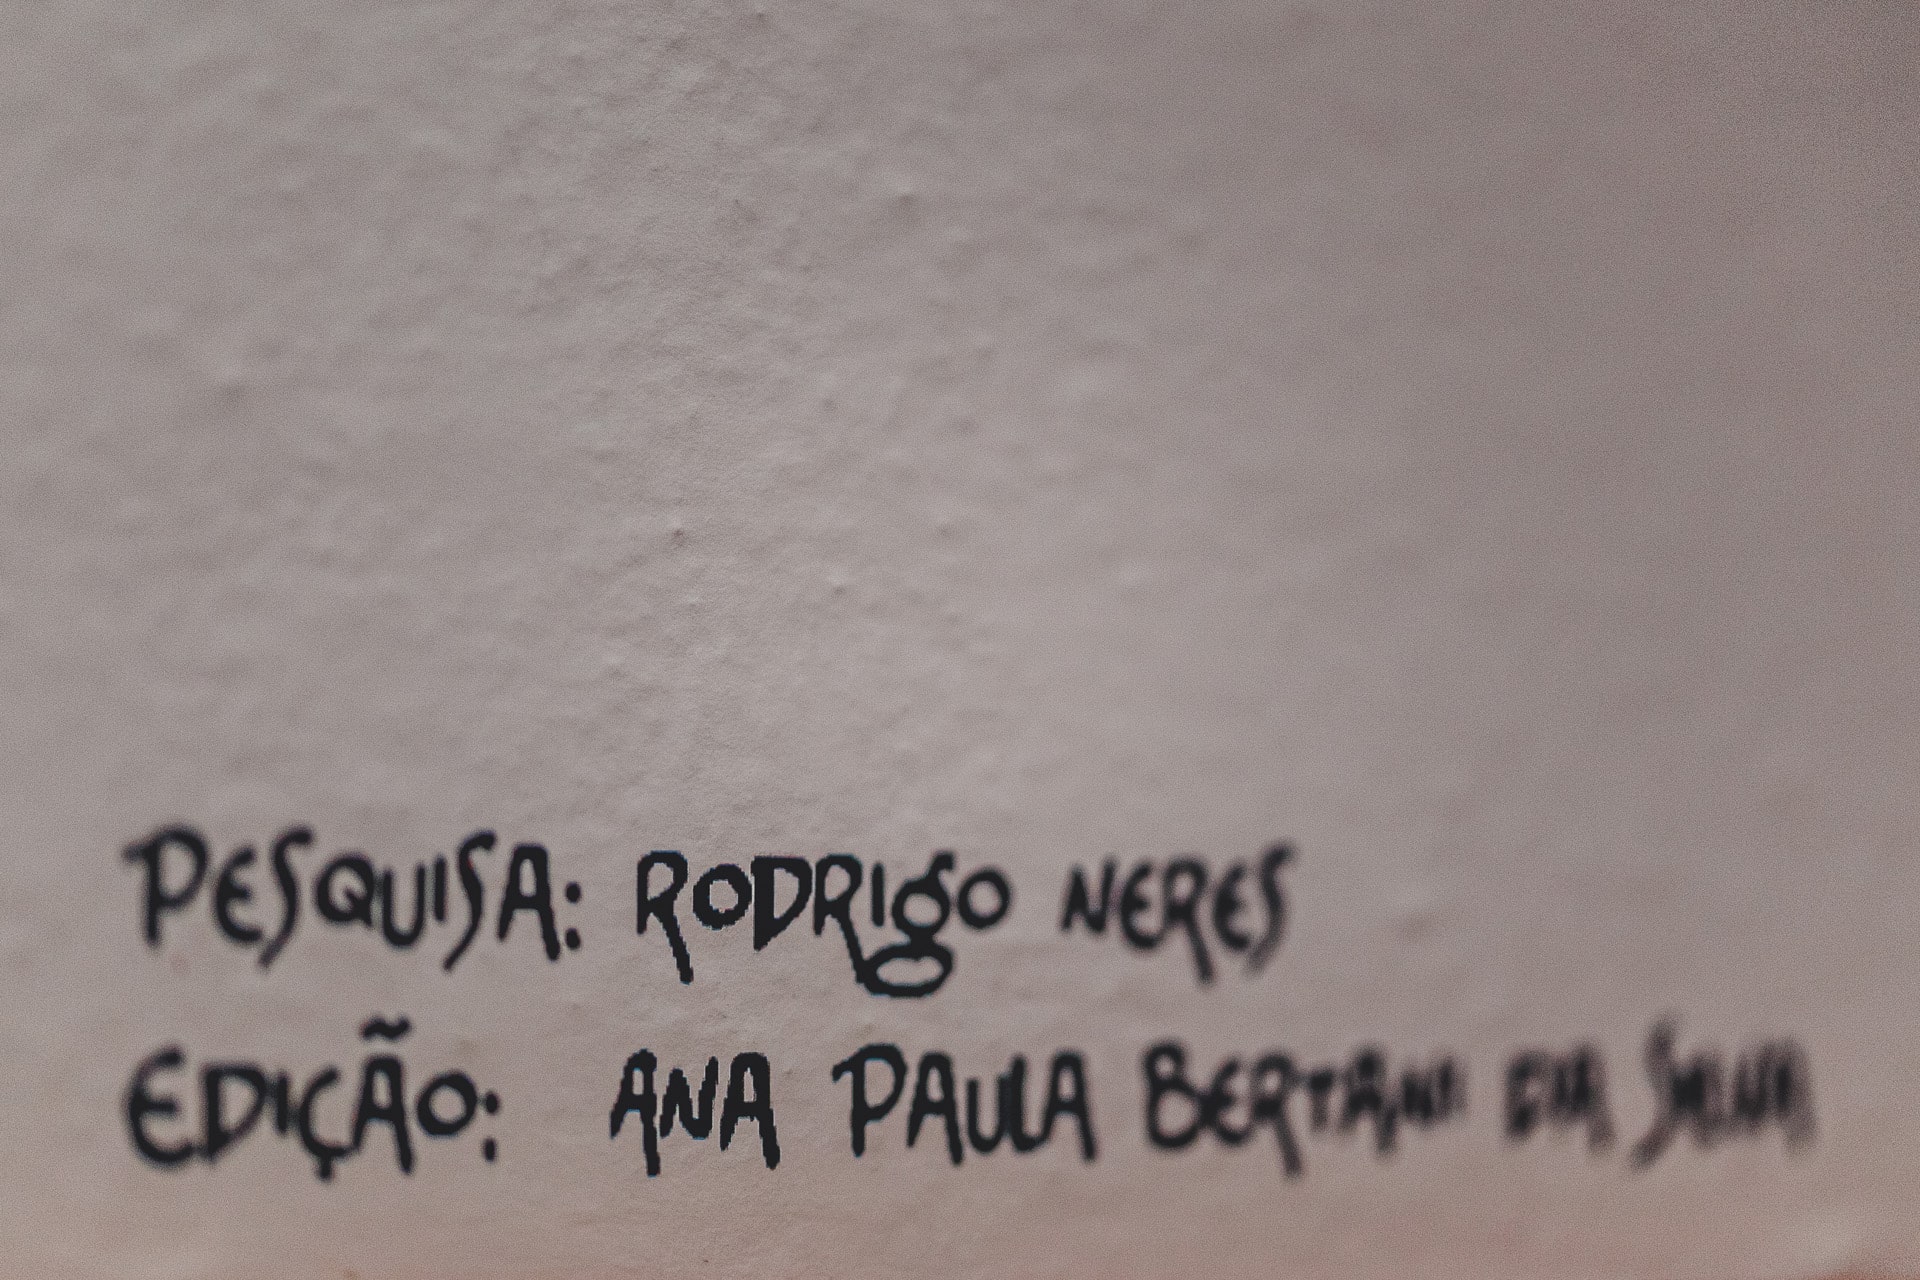 PESQUISA: RODRIgO NERES
EDIÇÃO: ANA PAULA BERTANI DA SILVA